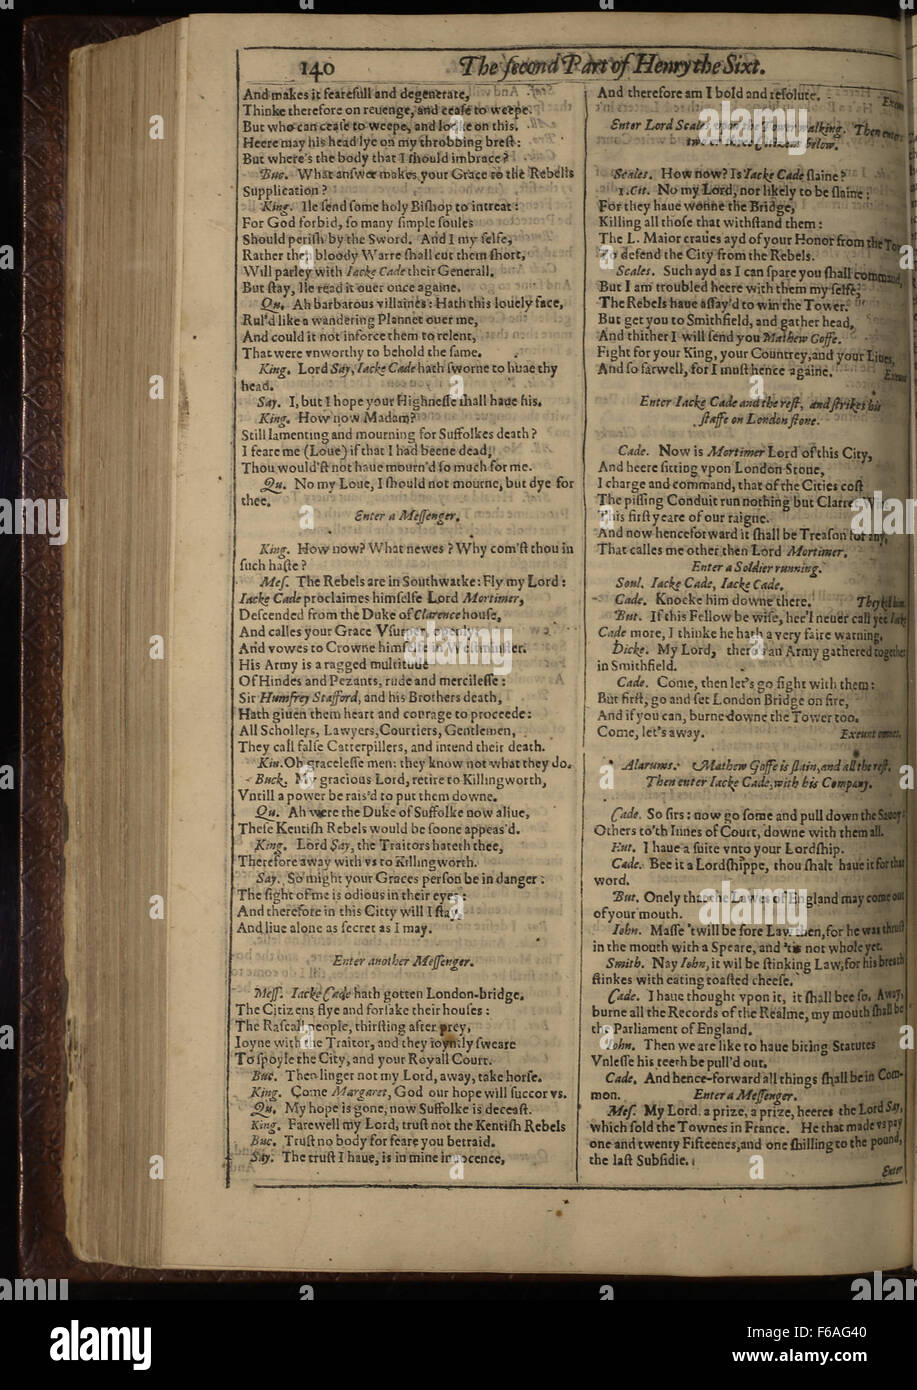 140 The second Part of Henry the Sixt.
And makes it fearefull and degenerate,
Thinke therefore on reuenge, and cease to weepe.
But who can cease to weepe, and looke on this.
Heere may his head lye on my throbbing brest:
But where's the body that I should imbrace?
Buc. What answer makes your Grace to the Rebells
Supplication?
King. Ile send some holy Bishop to intreat:
For God forbid, so many simple soules
Should perish by the Sword. And I my selfe,
Rather then bloody Warre shall cut them short,
Will parley with Iacke Cade their Generall.
But stay, Ile read it ouer once againe.
Qu. Ah barbarous villaines: Hath this louely face,
Rul'd like a wandering Plannet ouer me,
And could it not inforce them to relent,
That were vnworthy to behold the same.
King. Lord Say, Iacke Cade hath sworne to huae thy
head.
Say. I, but I hope your Highnesse shall haue his.
King. How now Madam?
Still lamenting and mourning for Suffolkes death?
I feare me (Loue) if that I had beene dead,
Thou would'st not haue mourn'd so much for me.
Qu. No my Loue, I should not mourne, but dye for
thee.
Enter a Messenger.
King. How now? What newes? Why com'st thou in
such haste?
Mes. The Rebels are in Southwarke: Fly my Lord:
Iacke Cade proclaimes himselfe Lord Mortimer,
Descended from the Duke of Clarence house,
And calles your Grace Vsurper, openly,
And vowes to Crowne himselfe in Westminster.
His Army is a ragged multitude
Of Hindes and Pezants, rude and mercilesse:
Sir Humfrey Stafford, and his Brothers death,
Hath giuen them heart and courage to proceede:
All Schollers, Lawyers, Courtiers, Gentlemen,
They call false Catterpillers, and intend their death.
Kin. Oh gracelesse men: they know not what they do.
Buck. My gracious Lord, retire to Killingworth,
Vntill a power be rais'd to put them downe.
Qu. Ah were the Duke of Suffolke now aliue,
These Kentish Rebels would be soone appeas'd.
King. Lord Say, the Traitors hateth thee,
Therefore away with vs to Killingworth.
Say. So might your Graces person be in danger:
The sight of me is odious in their eyes:
And therefore in this Citty will I stay,
And liue alone as secret as I may.
Enter another Messenger.
Mess. Iacke Cade hath gotten London-bridge.
The Citizens flye and forsake their houses:
The Rascall people, thirsting after prey,
Ioyne with the Traitor, and they ioyntly sweare
To spoyle the City, and your Royall Court.
Buc. Then linger not my Lord, away, take horse.
King. Come Margaret, God our hope will succor vs.
Qu. My hope is gone, now Suffolke is deceast.
King. Farewell my Lord, trust not the Kentish Rebels
Buc. Trust no body for feare you betraid.
Say. The trust I haue, is in mine innocence,
And therefore am I bold and resolute. Exeunt
Enter Lord Scales vpon the Tower walking. Then enters
two or three Citizens below.
Scales. How now? Is Iacke Cade slaine?
1. Cit. No my Lord, nor likely to be slaine:
For they haue wonne the Bridge,
Killing all those that withstand them:
The L. Maior craues ayd of your Honor from the Tower
To defend the City from the Rebels.
Scales. Such ayd as I can spare you shall command,
But I am troubled heere with them my selfe,
The Rebels haue assay'd to win the Tower.
But get you to Smithfield, and gather head,
And thither I will send you Mathew Goffe.
Fight for your King, your Countrey, and your Liues,
And so farwell, for I must hence againe. Exeunt
Enter Iacke Cade and the rest, and strikes his
staffe on London stone.
Cade. Now is Mortimer Lord of this City,
And heere sitting vpon London Stone,
I charge and command, that of the Cities cost
The pissing Conduit run nothing but Clarret Wine
This first yeare of our raigne.
And now henceforward it shall be Treason for any,
That calles me other then Lord Mortimer.
Enter a Soldier running.
Soul. Iacke Cade, Iacke Cade.
Cade. Knocke him downe there. They kill him.
But. If this Fellow be wise, hee'l neuer call yee Iacke
Cade more, I thinke he hath a very faire warning.
Dicke. My Lord, there's an Army gathered together
in Smithfield.
Cade. Come, then let's go fight with them:
But first, go and set London Bridge on fire,
And if you can, burne downe the Tower too.
Come, let's away. Exeunt omnes.
Alarums. Mathew Goffe is slain, and all the rest.
Then enter Iacke Cade, with his Company.
Cade. So sirs: now go some and pull down the Sauoy:
Others to'th Innes of Court, downe with them all.
But. I haue a suite vnto your Lordship.
Cade. Bee it a Lordshippe, thou shalt haue it for that
word.
But. Onely that the Lawes of England may come out
of your mouth.
Iohn. Masse 'twill be sore Law then, for he was thrust
in the mouth with a Speare, and 'tis not whole yet.
Smith. Nay Iohn, it wil be stinking Law, for his breath
stinkes with eating toasted cheese.
Cade. I haue thought vpon it, it shall bee so. Away,
burne all the Records of the Realme, my mouth shall be
the Parliament of England.
Iohn. Then we are like to haue biting Statutes
Vnlesse his teeth be pull'd out.
Cade. And hence-forward all things shall be in Com-
mon. Enter a Messenger.
Mes. My Lord, a prize, a prize, heeres the Lord Say,
which sold the Townes in France. He that made vs pay
one and twenty Fifteenes, and one shilling to the pound,
the last Subsidie.
Enter
alamy
Image ID: F6AG40
www.alamy.com